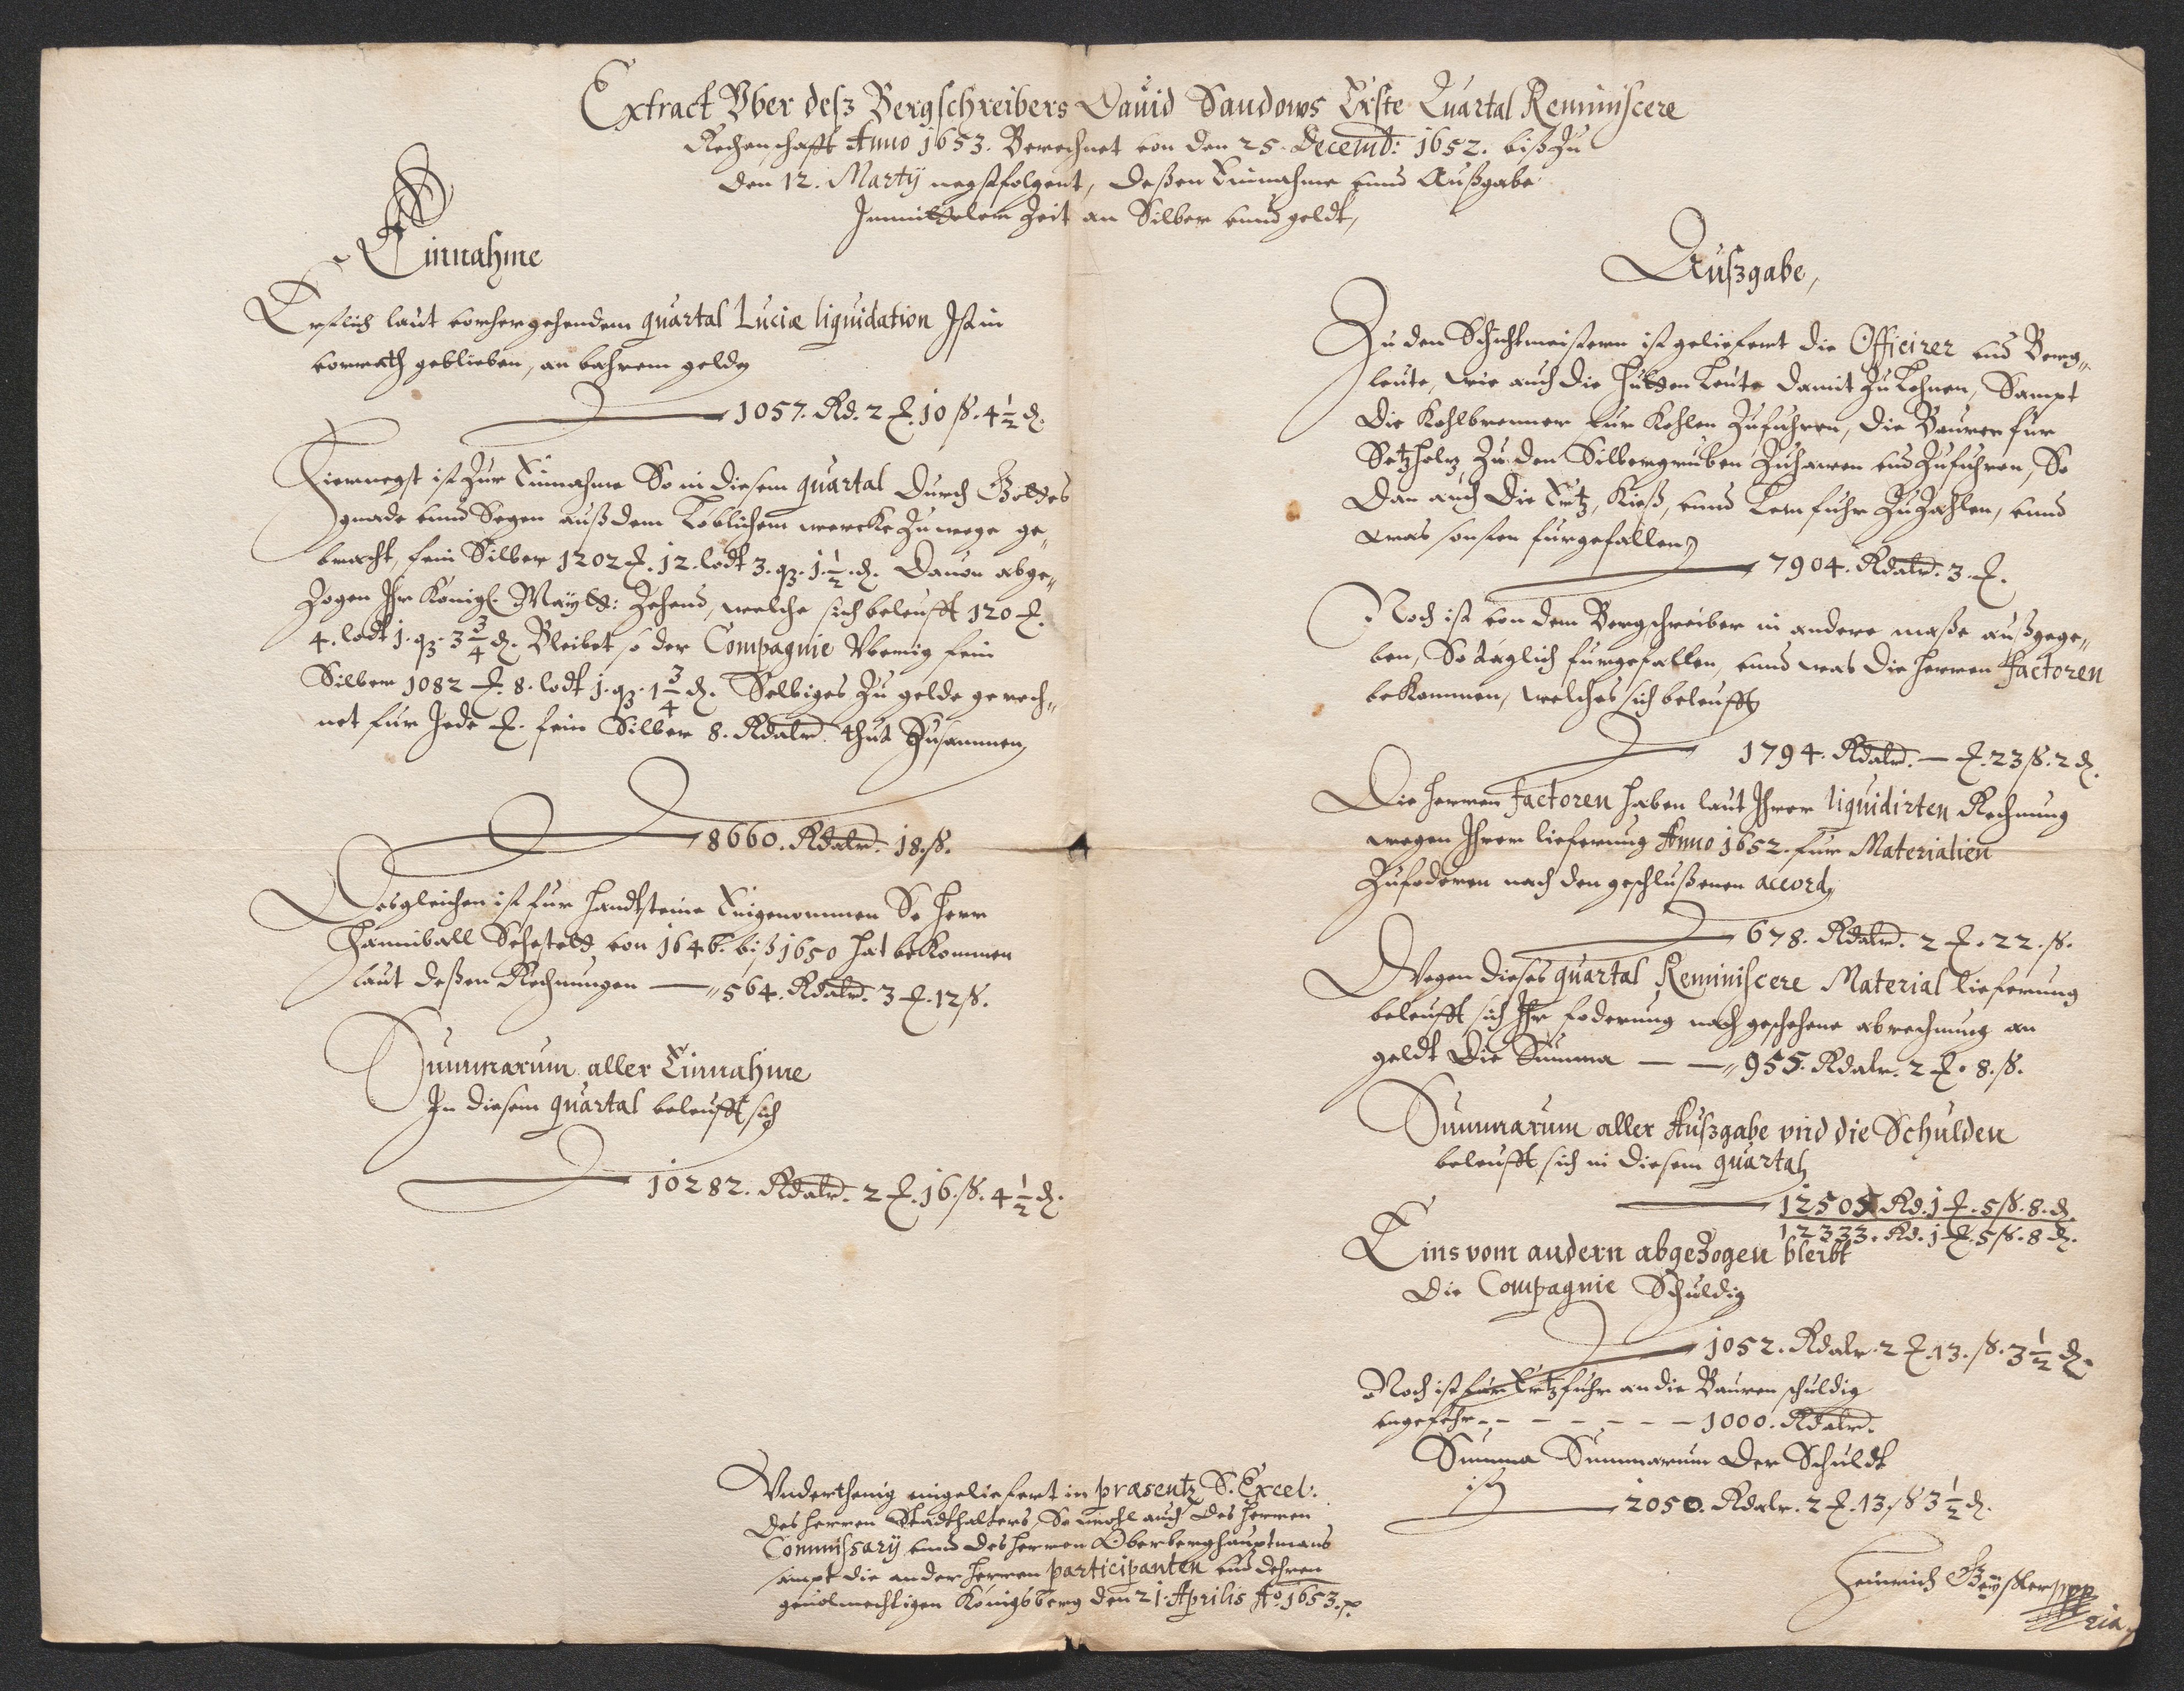 Extract Vber desz Bergschreibers Dauid Sandows Erste Quartal Reminiscere
Rechenschafft Anno 1653. Berechnet von den 25. Decemb: 1652. biß Zu
den 12. Martij negstfolgent, deßen Einnahme vnnd Außgabe
Immittelem Zeit an Silber vnnd geldt,
Einnahme
Erstlich laut vorhergehendem quartal Luciæ liquidation Ist in
vorrath geblieben, an bahrem gelde
1057. Rd. 2 ₰. 10 ß. 4 1/2 ₰.
Hiernegst ist Zur Einnahme So in diesem quartal durch Gottes
gnade vnnd Segen auß dem Löblichem wercke Zuwege ge„
bracht, fein Silber 1202 ₰. 12. lodt 3. q. 1 1/2 ₰. Dauon abge„
Zogen Ihr Königl. Maytt: Zehend, welche sich beleufft 120 ₰.
4. lodt 1. q. 3 3/4 ₰. Bleibet so der Compagnie Vberig fein
Silber 1082 ₰. 8. lodt 1. q. 1 3/4 ₰. Selbiges Zu gelde gerech„
net für Jede ₰. fein Silber 8. Rdalr. thut Zusammen
8660. Rdalr. 18. ß.
Desgleichen ist für Handtsteine Eingenommen So Herr
Hanniball Sehestedt von 1646. biß 1650 hat bekommen
laut deßen Rechnungen —„ 564. Rdalr. 3 ₰. 12 ß.
Summarum aller Einnahme
In diesem quartal beleufft sich
10282. Rdalr. 2 ₰. 16. ß. 4 1/2 ₰.
Außgabe,
Zu den Schichtmeistern ist geliefert die Officirer und Berg„
leute, wie auch die Hütten Leute damit Zu Lohnen, Sampt
die Kohlbrenner für Kohlen Zuführen, die Bauren für
Setzholz Zu den Silbergruben Zuhawen und Zuführen, So
dan auch die Ertz, Kieß, vnnd Lem fuhr Zu Zahlen, vnnd
was sonsten fürgefallen
7904. Rdalr. 3. ₰.
Noch ist von dem Bergschreiber in andere maße außgege„
ben, So täglich fürgefallen, vnnd was die Herren Factoren
bekommen, welches sich beleufft
1794. Rdalr. — ₰. 23 ß. 2 ₰.
Die Herren Factoren haben laut Ihrer liquidirten Rechnung
wegen Ihrer lieferung Anno 1652. für Materialien
Zufoderen nach den geschlußenen accord,
678. Rdalr. 2 ₰. 22. ß.
Wegen dieses quartal Reminiscere Material lieferung
beleufft sich Ihr foderung nach geschehene abrechnung an
geldt die Summa — —„ 955. Rdalr. 2 ₰. 8. ß.
Summarum aller Außgabe vnd die Schulden
beleufft sich in diesem quartal
12505 Rd. 1 ₰. 5 ß. 8. ₰.
12333. Rd. 1 ₰. 5 ß. 8 ₰.
Eins vom andern abgezogen bleibt
die Compagnie Schuldig
1052. Rdalr. 2 ₰. 13. ß. 3 1/2 ₰.
Noch ist für Ertzfuhr an die Bauren schuldig
vngefehr - - - - - - - 1000. Rdalr.
Summa Summarum der Schuldt
ist
2050. Rdalr. 2 ₰. 13. ß 3 1/2 ₰.
Vnderthenig eingeliefert in præsentz S. Excel.
des Herren Stadthalters, So wohl auch des Herren
Commissarij vnnd des Herren Oberberghauptmans
sampt die ander Herren participanten und dehren
geuolmechtigen Königsberg den 21. Aprilis Ao. 1653.
Heinrich